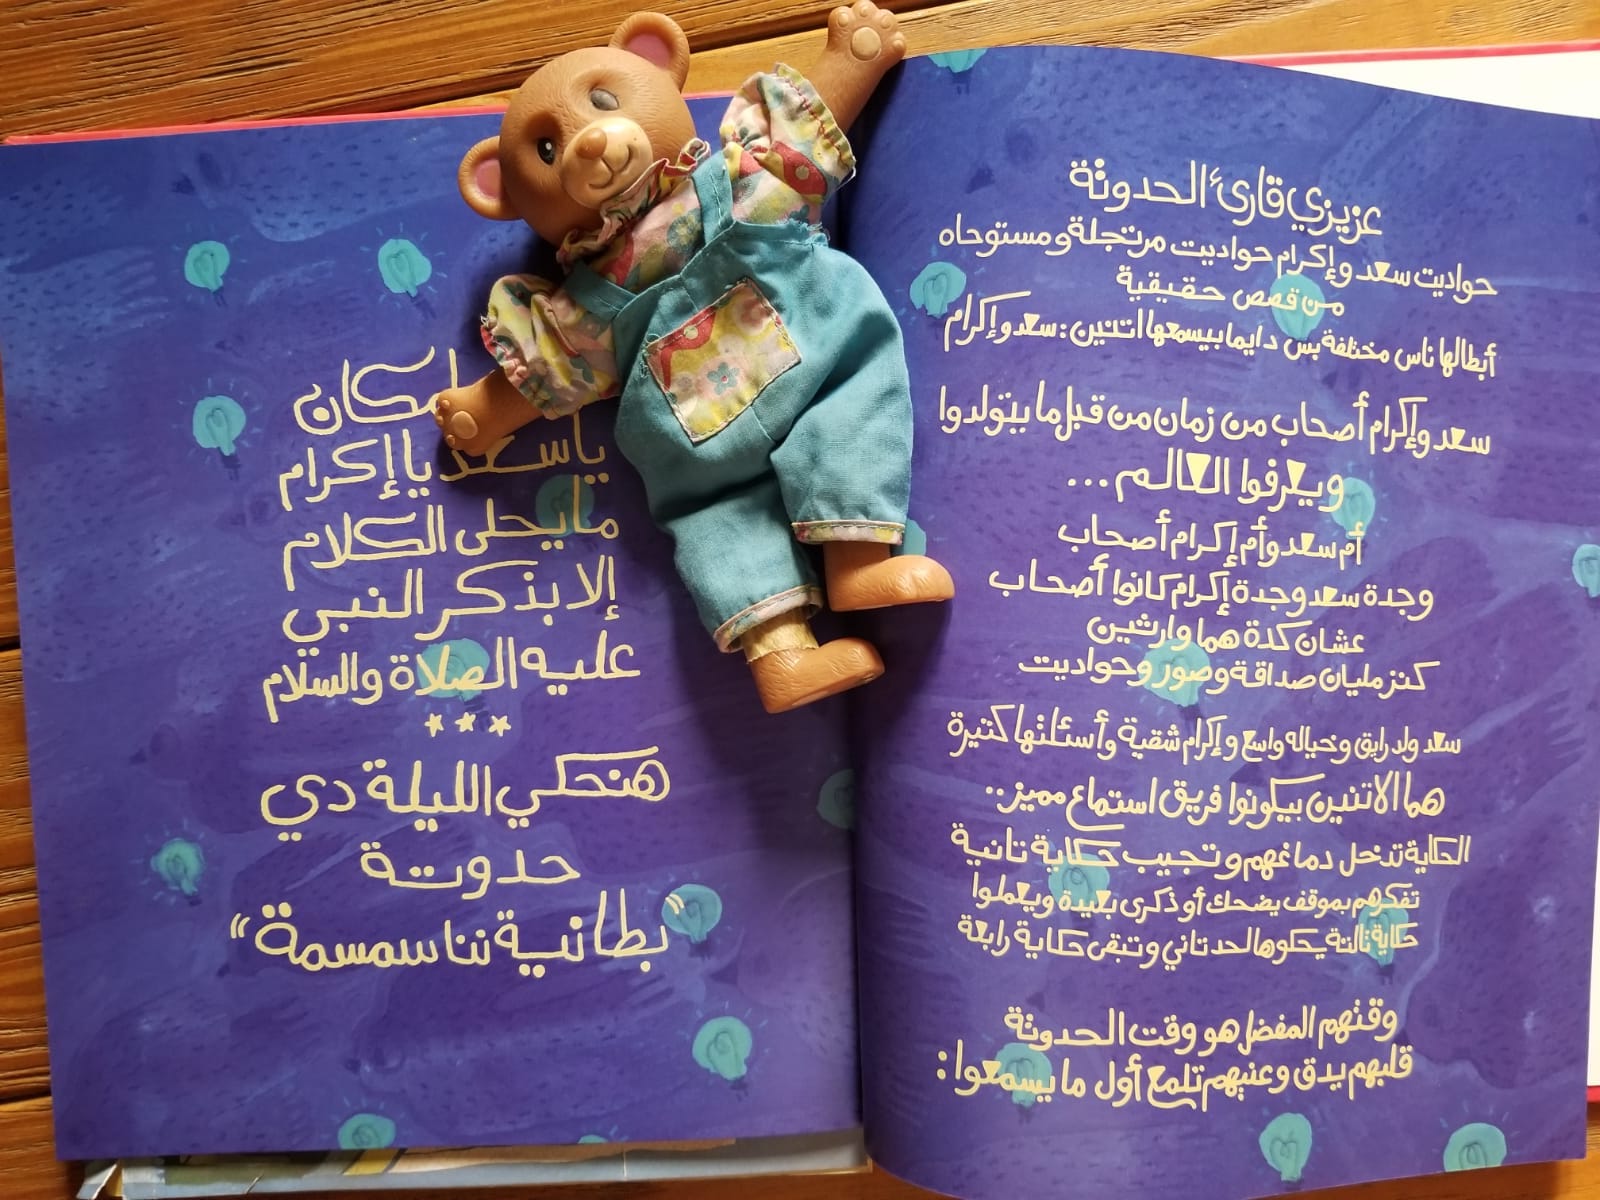 عزيزي قارئ الحدوتة
حواديت سعد وإكرام حواديت مرتجلة ومستوحاه
من قصص حقيقية
أبطالها ناس مختلفة بس دايما بيسمعها اتنين: سعد وإكرام
سعد وإكرام أصحاب من زمان من قبل ما يتولدوا
ويعرفوا العالم...
أم سعد وأم إكرام أصحاب
وجدة سعد وجدة إكرام كانوا أصحاب
عشان كدة هما وارثين
كنز مليان صداقة وصور وحواديت
سعد ولد رايق وخياله واسع وإكرام شقية وأسئلتها كتيرة
هما الاتنين بيكونوا فريق استماع مميز..
الحكاية تدخل دماغهم وتجيب حكاية تانية
تفكرهم بموقف يضحك أو ذكرى بعيدة ويعملوا
حكاية تالتة يحكوها لحد تاني وتبقى حكاية رابعة
وقتهم المفضل هو وقت الحدوتة
قلبهم يدق وعنيهم تلمع أول ما يسمعوا:
كان
يا سعد يا إكرام
ما يحلى الكلام
إلا بذكر النبي
عليه الصلاة والسلام
***
هنحكي الليلة دي
حدوتة
"بطانية نناسمسمة"